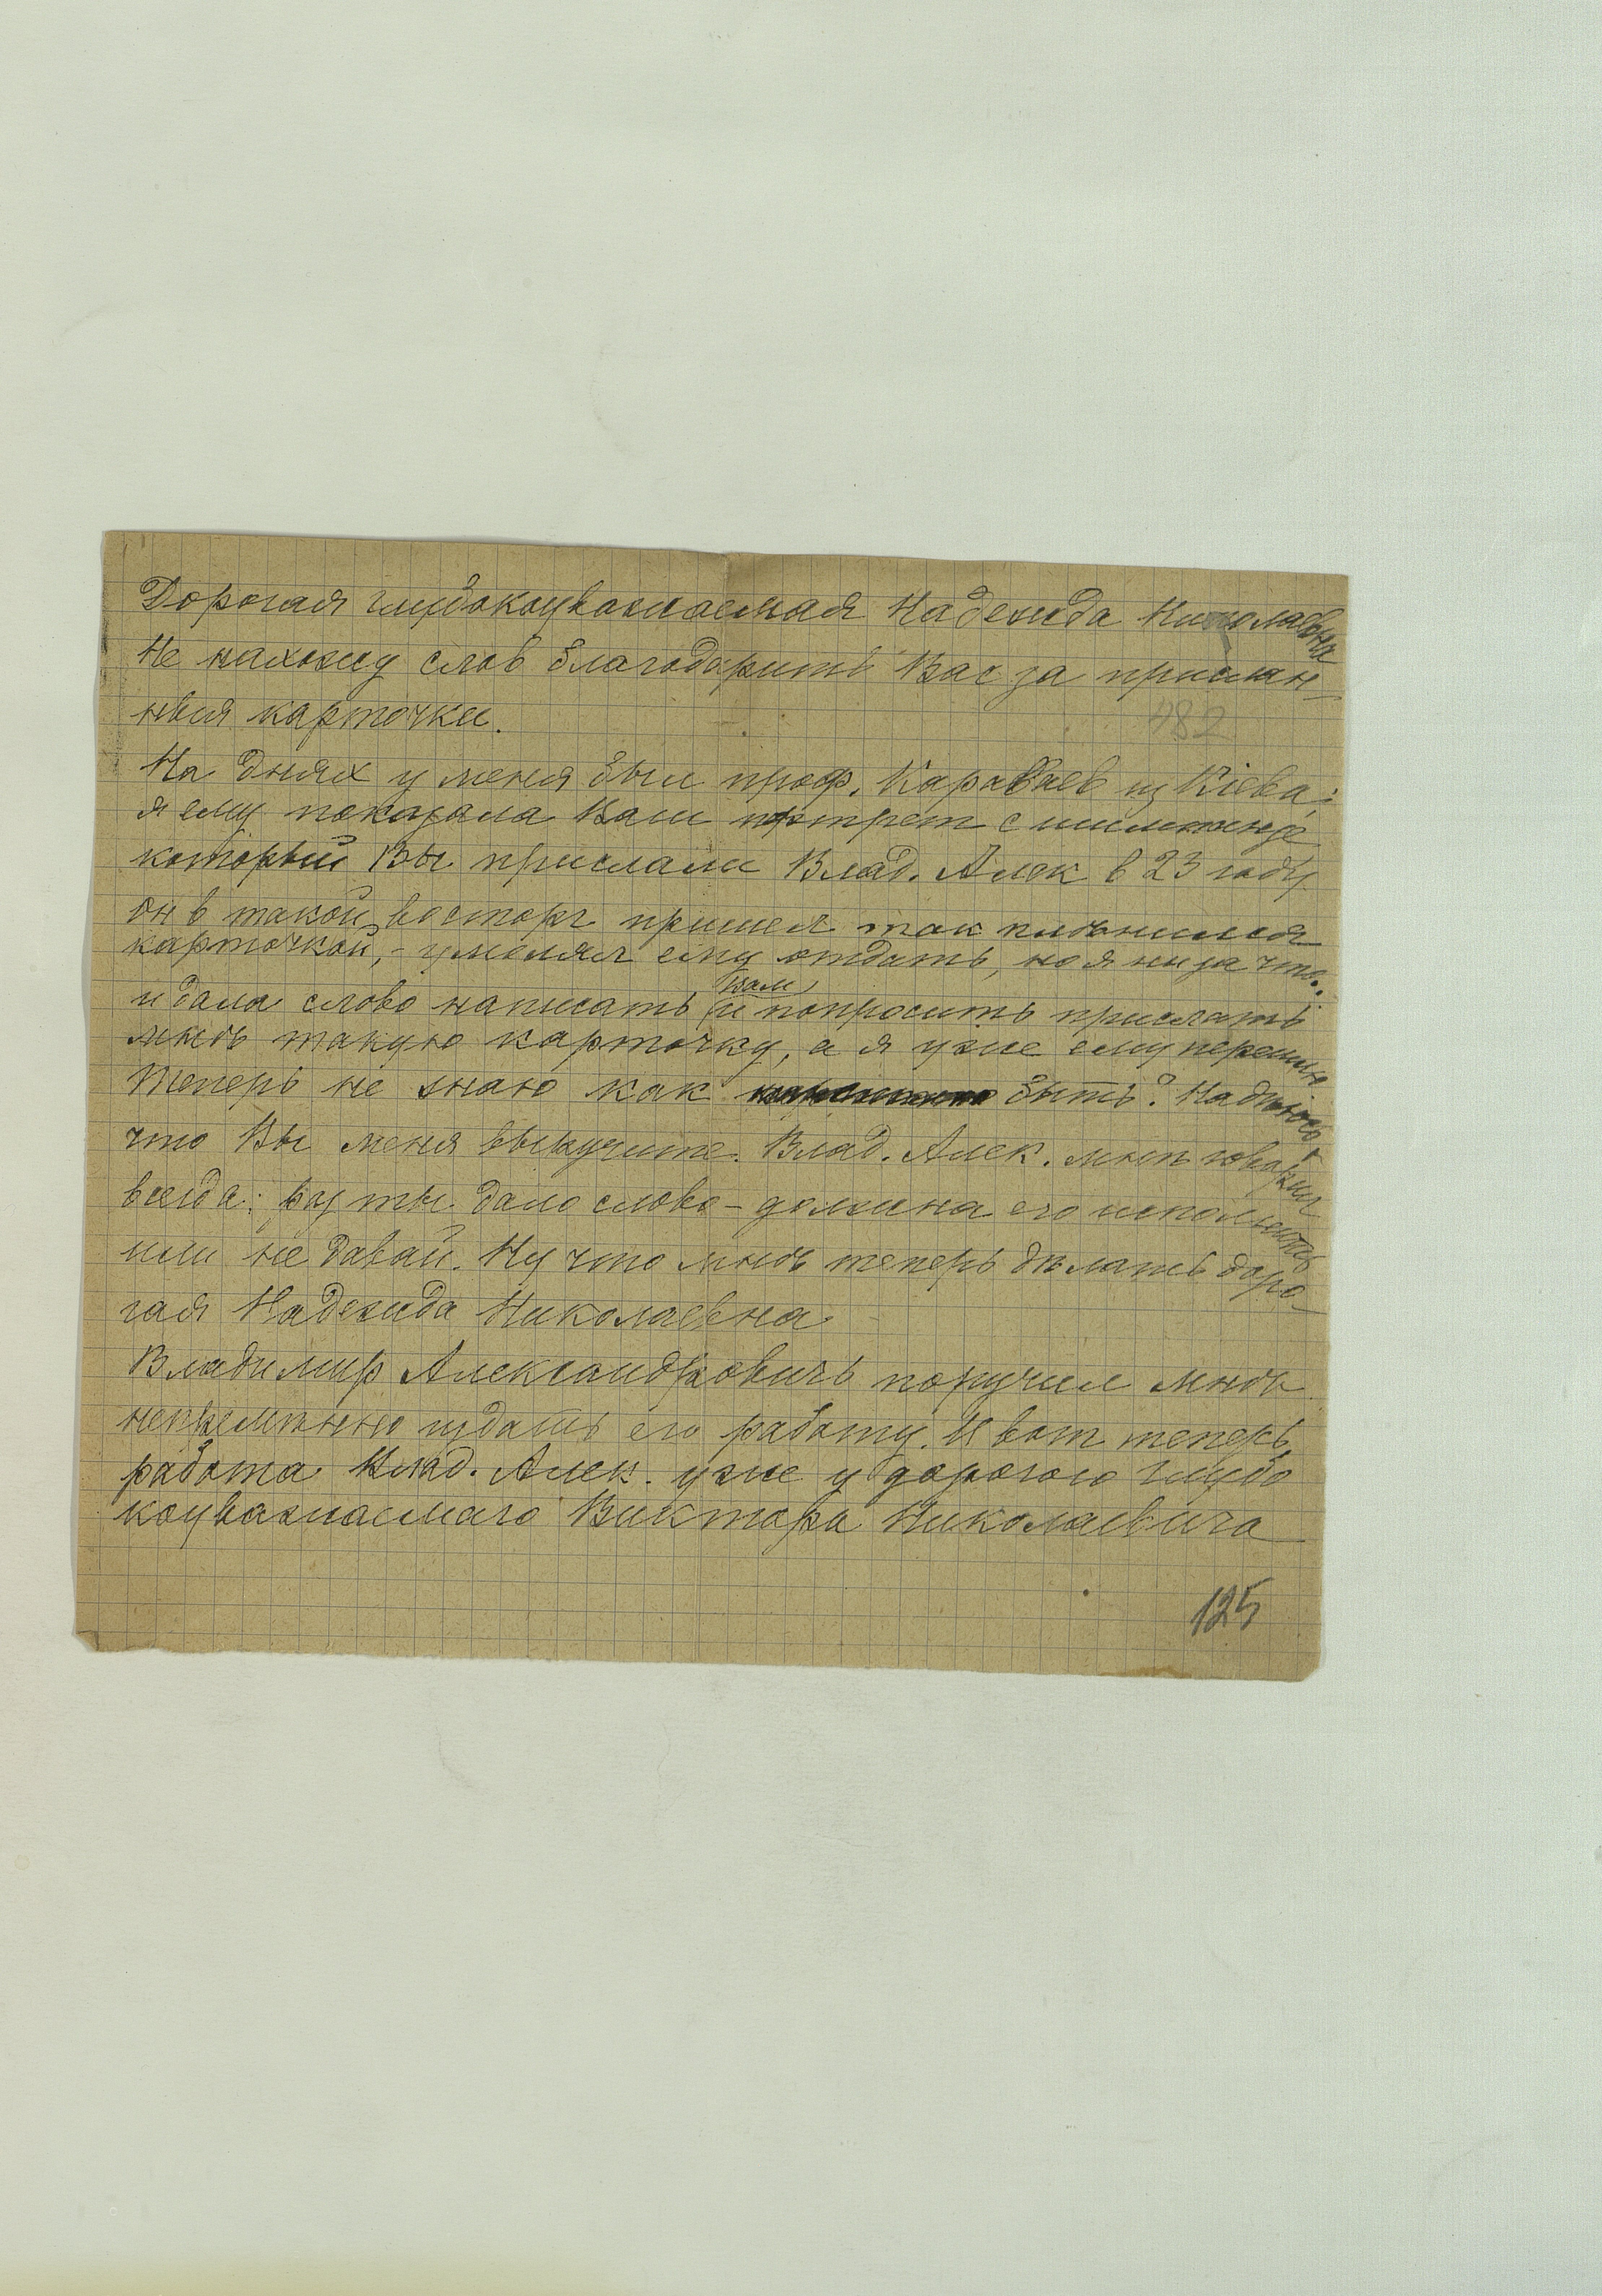 Дорогая глубокоуважаемая Надежда Николаевна
Не нахожу слов благодарить Вас за прислан-
ныя карточки.
482
На днях у меня был проф. Караваев из Кіева;
я ему показала Ваш портрет с шимпанзе
который Вы прислали Влад. Алек в 23 году
он в такой восторг пришел так пленился
карточкой, - умолял ему отдать, но я ни за что.
и дала слово написать Вам и попросить прислать
мнѣ такую карточку, а я уже ему перешлю
Теперь не знаю как быть? Надѣюсь
что Вы меня выручите. Влад. Алек. мнѣ говорил
всегда: раз ты дала слово - должна его исполнить
или не давай. Ну что мнѣ теперь дѣлать доро-
гая Надежда Николаевна
Владимир Александрович поручил мнѣ
непремѣнно издать его работу. И вот теперь
работа Влад. Алек. уже у дорогого глубо
коуважаемаго Виктора Николаевича
125